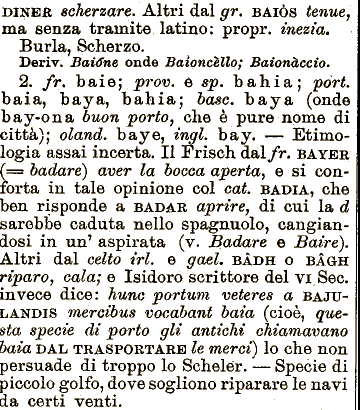 DINER scherzare. Altri dal gr. BAIÒS tenue,
ma senza tramite latino: propr. inezia.
Burla, Scherzo.
Deriv. Baióne onde Baioncèllo; Baionàccio.
2. fr. baie; prov. e sp. bahia; port.
baia, baya, bahia; basc. baya (onde
bay-ona buon porto, che è pure nome di
città); oland. baye, ingl. bay. — Etimo-
logia assai incerta. Il Frisch dal fr. BAYER
(= badare) aver la bocca aperta, e si con-
forta in tale opinione col cat. BADIA, che
ben risponde a BADAR aprire, di cui la d
sarebbe caduta nello spagnuolo, cangian-
dosi in un' aspirata (v. Badare e Baire).
Altri dal celto irl. e gael. BÂDH o BÂGH
riparo, cala; e Isidoro scrittore del VI Sec.
invece dice: hunc portum veteres a BAJU-
LANDIS mercibus vocabant baia (cioè, que-
sta specie di porto gli antichi chiamavano
baia DAL TRASPORTARE le merci) lo che non
persuade di troppo lo Scheler. — Specie di
piccolo golfo, dove sogliono riparare le navi
da certi venti.